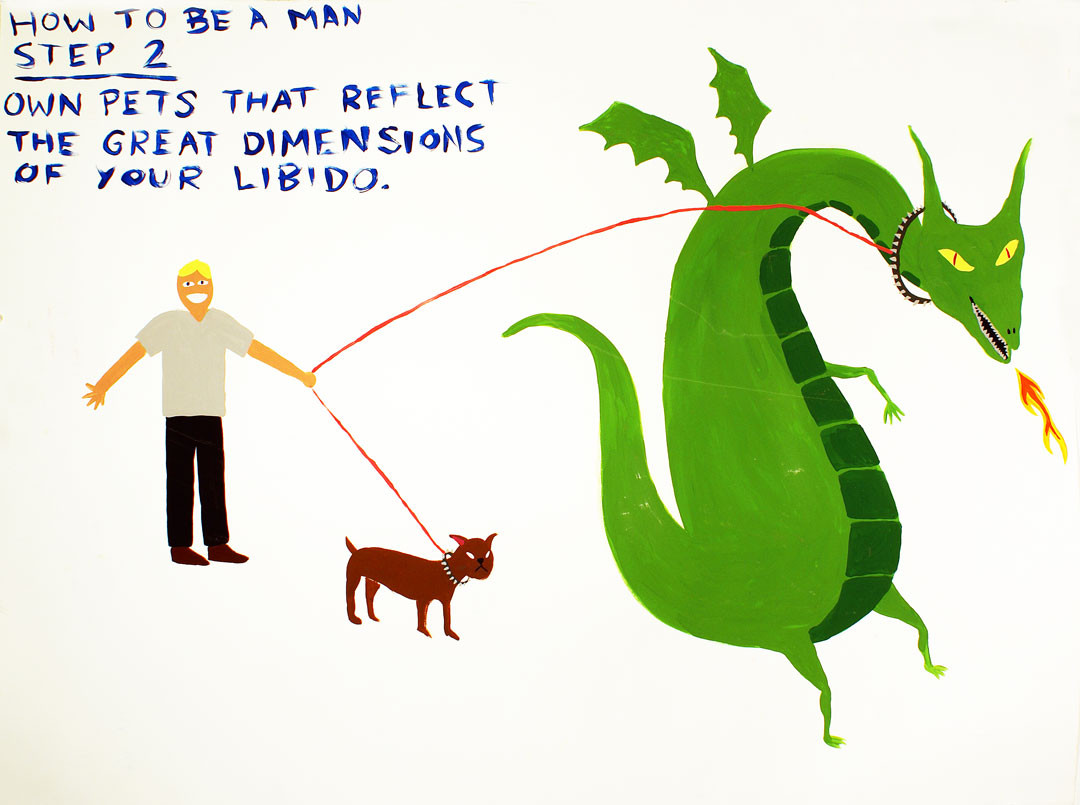 HOW TO BE A MAN
STEP 2
OWN PETS THAT REFLECT
THE GREAT DIMENSIONS
OF YOUR LIBIDO.